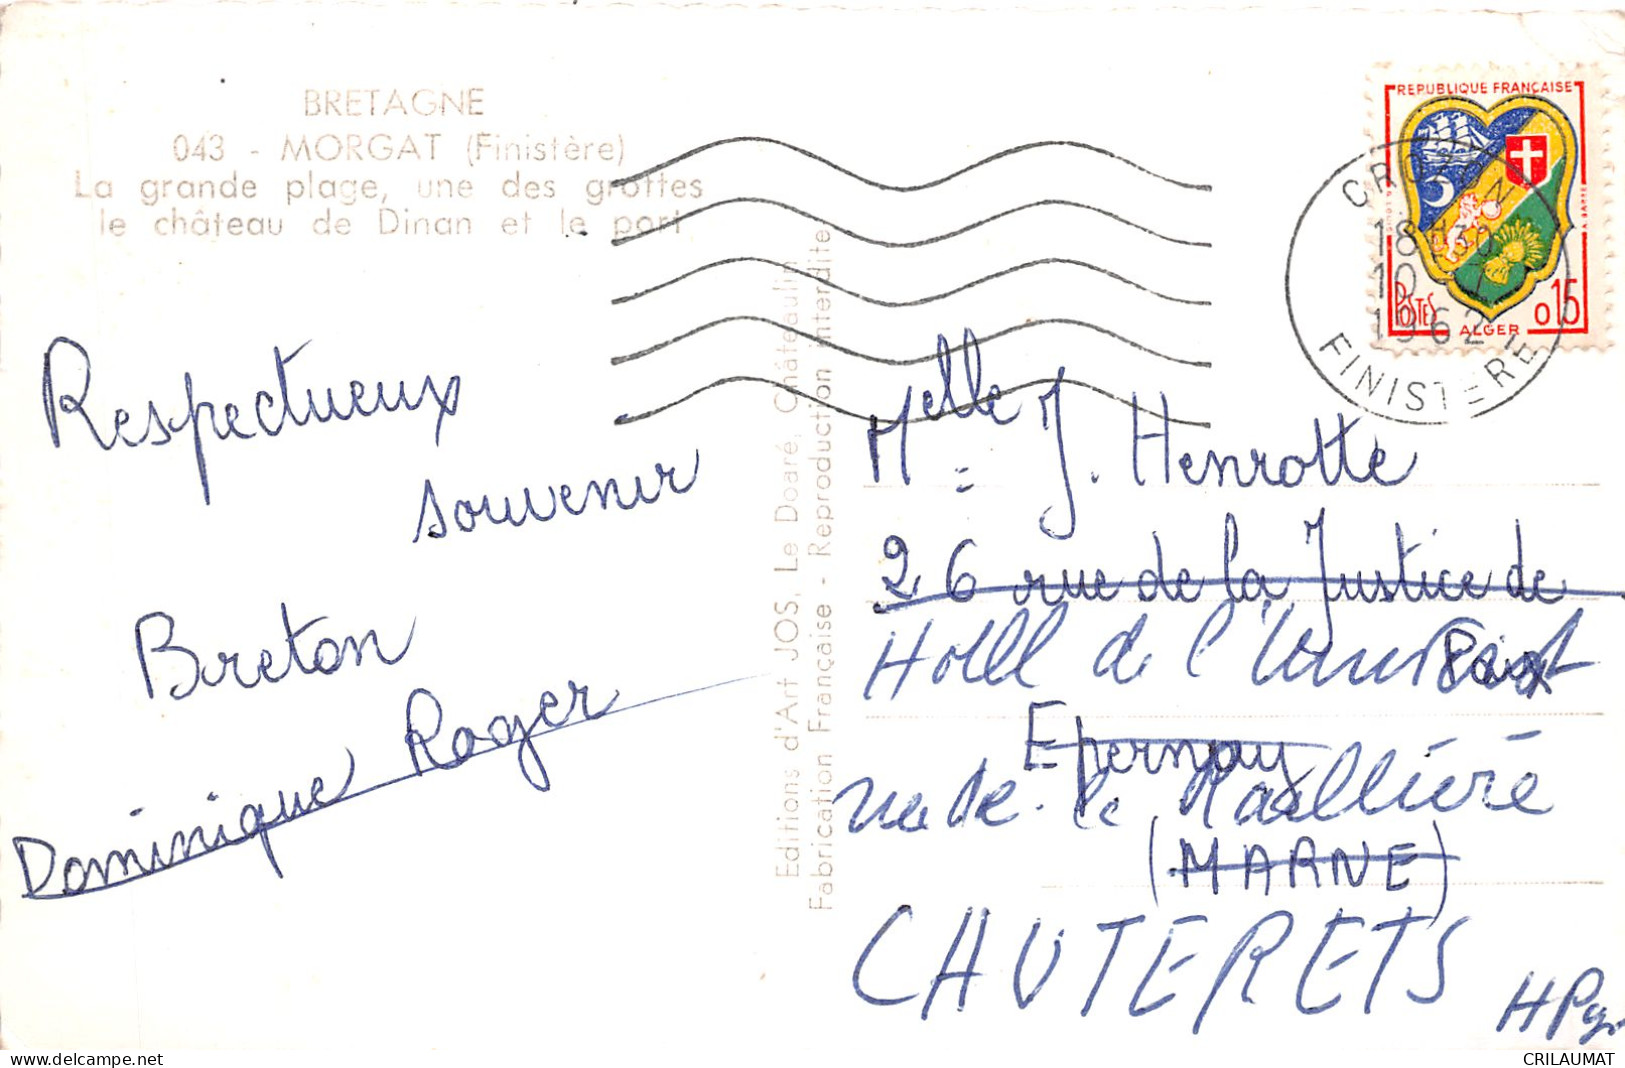 BRETAGNE
043 - MORGAT (Finistère)
La grande plage, une des grottes
le château de Dinan et le port
Respectueux
souvenir
Breton
Dominique Roger
Editions d'Art JOS, Le Doaré, Châteaulin
Fabrication Française - Reproduction interdite
REPUBLIQUE FRANÇAISE
POSTES
ALGER
0,15
CROZON
18H30
10
1962
FINISTERE
Melle J. Henrotte
26 rue de la Justice de
Paix
Hotel de l'Univers
Epernay
rue de la Raillière
(MARNE)
CAUTERETS
H Pyr
CRILAUMAT